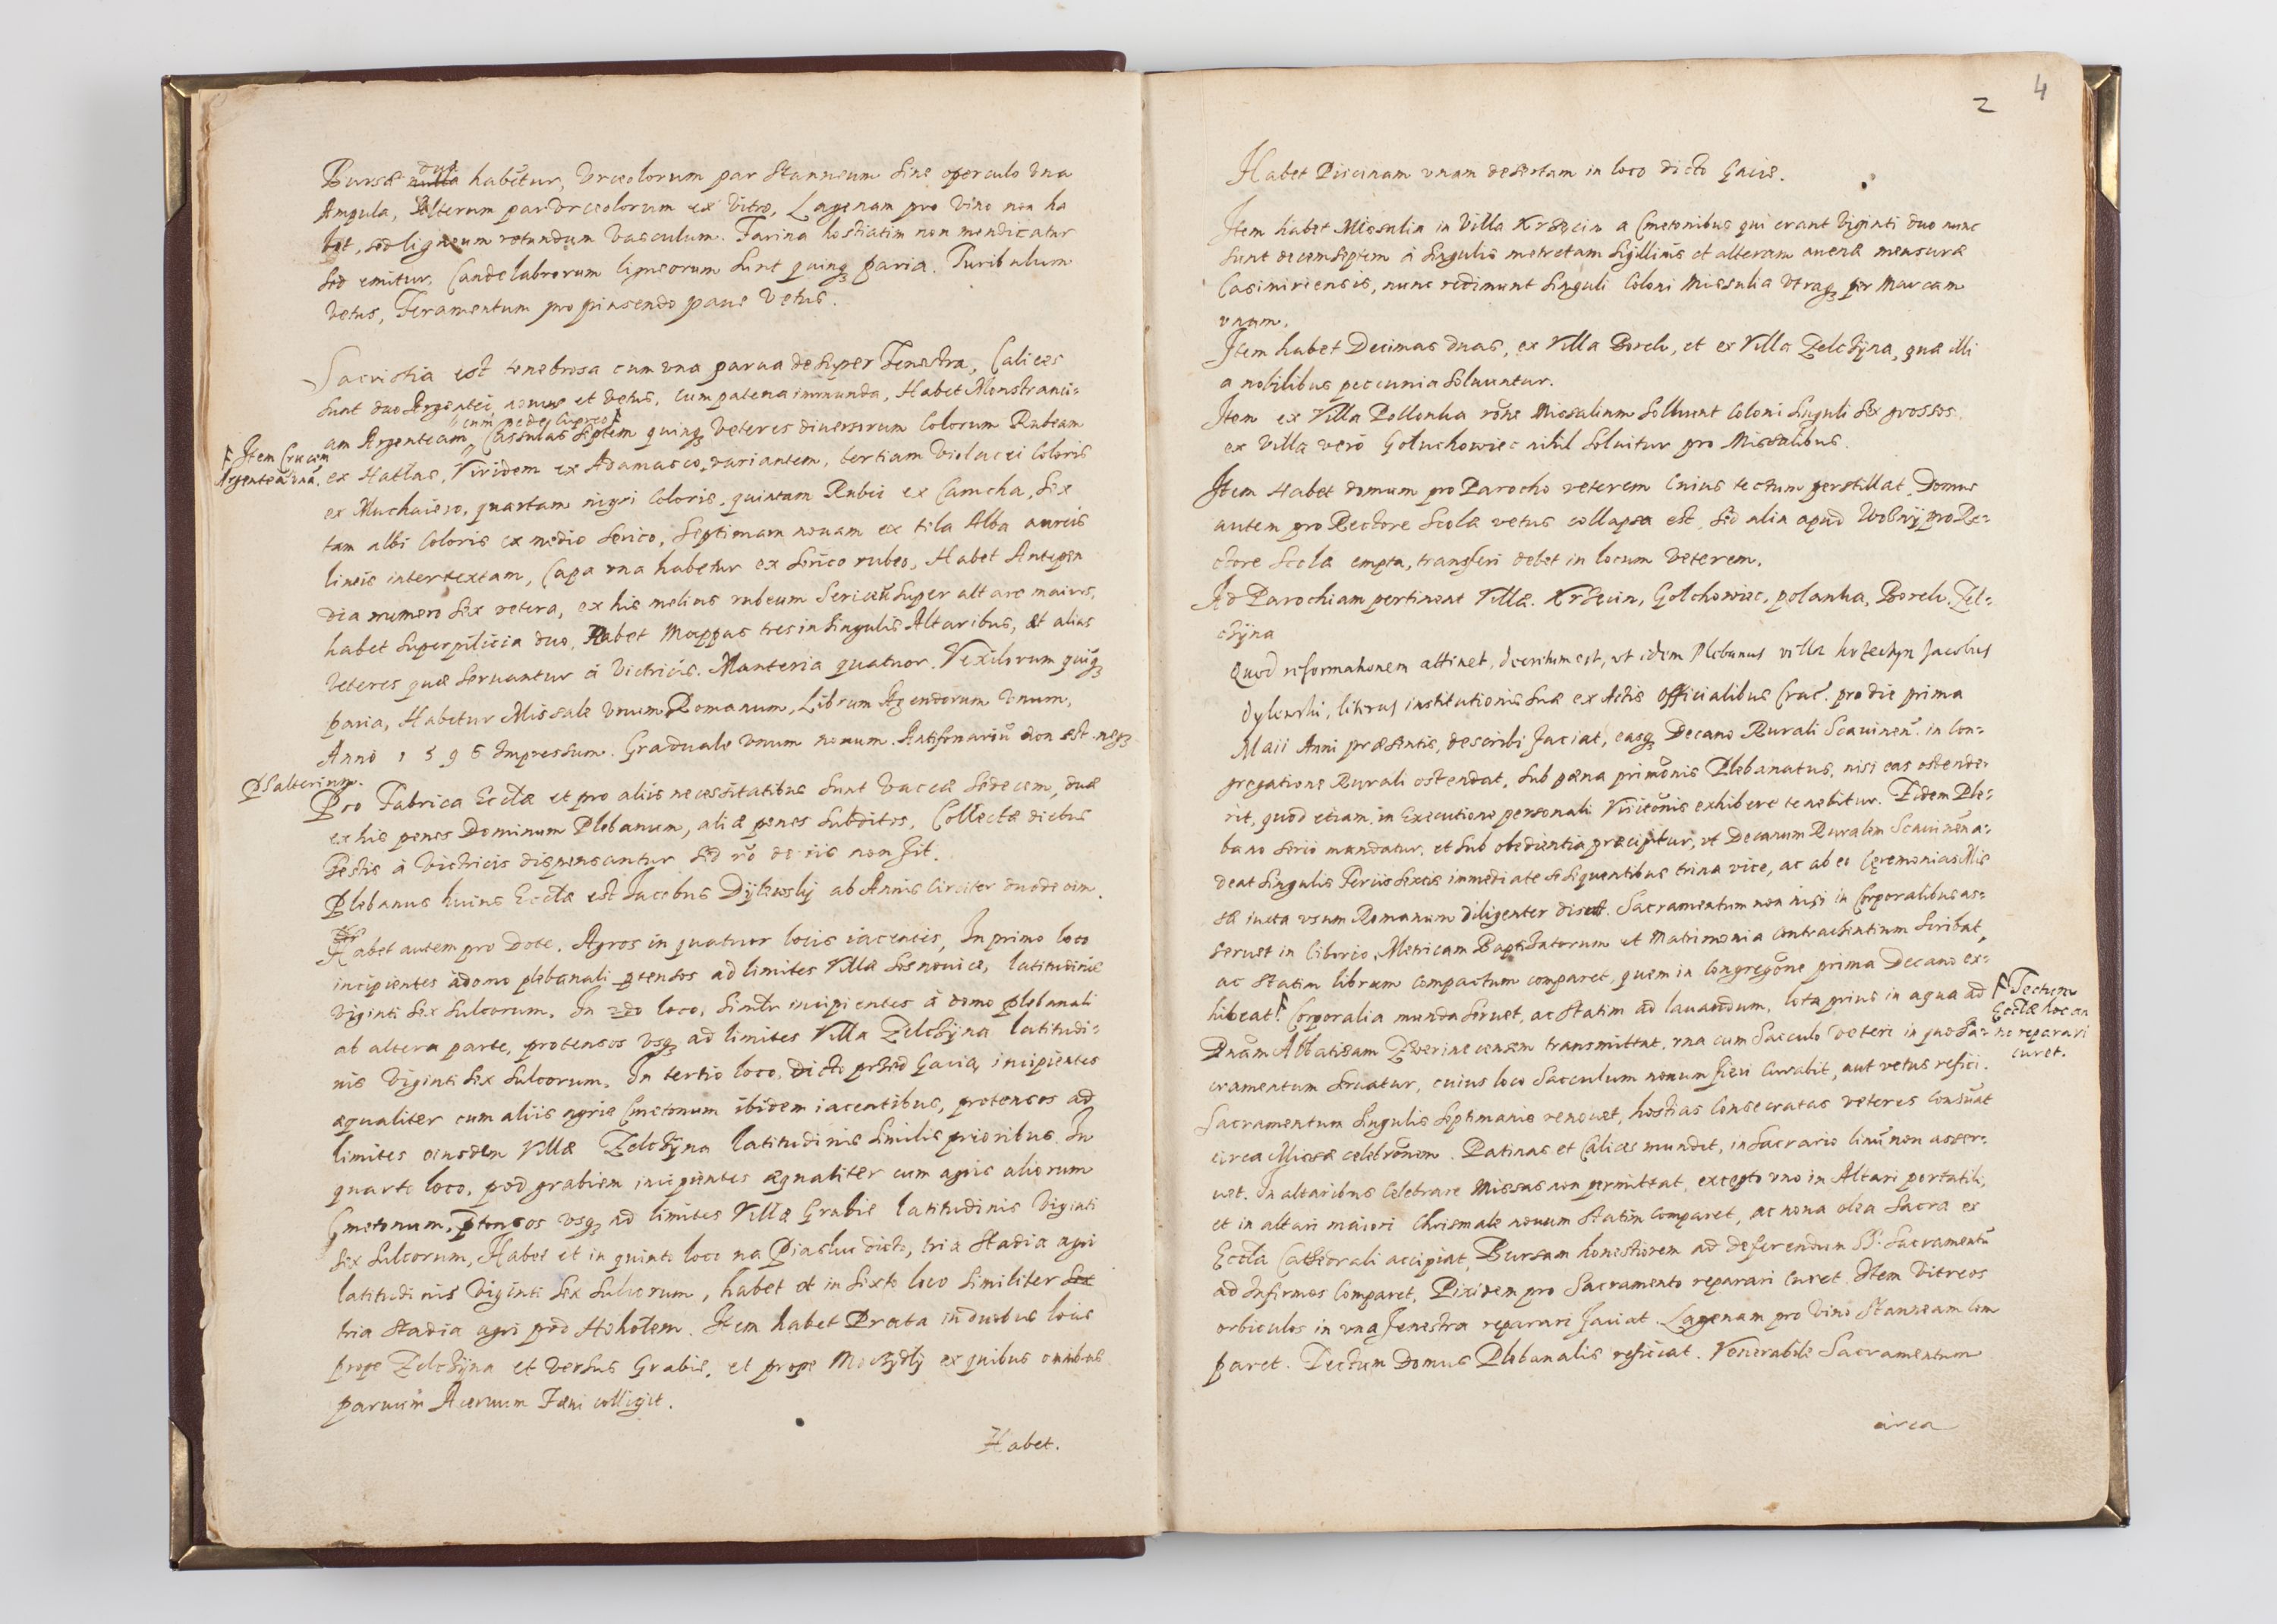 Bursæ nulla duæ habẽtur, Vrceolorum par Stanneum sine operculo vna
Ampula, Alterum par Vrceolorum ex Vitro, Lagenam pro Vino non ha
bet, sed ligneum rotundum Vasculum. Farina hostiatim non mendicatur
sed emitur, Candelabrorum ligneorum sunt quinq paria. Turibulum
vetus, Feramentum pro pinsendo pane Vetus.
Sacristia est tenebrosa cum vna parua desuper Fenestra, Calices
sunt duo Argentei, nouus et vetus, cum patena immunda, Habet Monstranci=
cum pede cupreo
am Argenteam, Cassulas septem quinq veteres diuersorum Colorum Rubeam
Item Crucem
Argenteã vnã.
ex Hatłas, Viridem ex Adamasco variantem, tertiam Violacei Coloris
ex Muchaiero, quartam nigri Coloris, quintam Rubei ex Camcha, Sex
tam albi Coloris ex medio Serico, Septimam nouam ex tela Alba aureis
lineis intertextam, Capa vna habetur ex Serico rubeo, Habet Antepen
dia numero sex vetera, ex his melius rubeum Sericeũ super altare maius,
habet Superpilicia duo, Habet Mappas tres in singulis Altaribus, et alias
veteres quæ seruantur à Victricis. Manteria quatuor. Vexilorum quiq
paria, Habetur Missale vnum Romanum, Librum Agendorum Vnum,
Anno 1595 Impressum. Graduale vnum nouum. Antifonariũ non est neq
Psalterium.
Pro Fabrica Ecclæ et pro aliis necessitatibus sunt Vaccæ sedecem, duæ
ex his penes Dominum Plebanum, aliæ penes subditos. Collectæ diebus
Festis à Victricis dispensantur sed rõ de iis non fit.
Plebanus huius Ecclæ est Jacobus Dylewsky ab Annis Circiter duodecim.
Habet autem pro Dote. Agros in quatuor locis iacentes, In primo loco
incipientes à domo plebanali ptensos ad limites Villæ Sosnouice, latitudinis
Viginti sex sulcorum. In 2do loco, simitr incipientes à domo plebanali
ab altera parte, protensos vsq ad limites Villa Zelczyna latitudi=
nis Viginti sex sulcorum. In tertio loco, dicto przed Gaią incipientes
æqualiter cum aliis agris Cmetonum ibidem iacentibus, protensos ad
limites eiusdem Villæ Zelczyna latitudinis similis prioribus. In
quarto loco, pod grabiem incipientes æqualiter cum agris aliorum
Cmetonum, ptensos vsq ad limites Villæ Grabie latitudinis Viginti
sex sulcorum, Habet et in quinto loco na Piasku dicto, tria Stadia agri
latitudinis Viginti sex sulcorum, habet et in sexto loco similiter sex
tria Stadia agri pod Hokolem. Item habet Prata in duobus locis
prope Zelczyna et versus Grabie, et prope Moczydly ex quibus omnibus
paruum Aceruum Fæni colligit.
Habet.
2
4
Habet Piscinam vnam desertam in loco dicto Gaie.
Item habet Missalia in Villa Krzęcin a Cmetonibus qui erant Viginti duo nunc
sunt decem septem à singulis metretam siliginis et alteram auenæ mensuræ
Casimiriensis, nunc redimunt singuli Coloni Missalia Vtraq per Marcam
vnam.
Item habet Decimas duas, ex Villa Borek, et ex Villa Zelczyna, quæ illi
a nobilibus peccunia soluuntur.
Item ex Villa Pollanka rõne Missalium Solluunt Coloni singuli sex grossos
ex Villa verò Goluchowiec nihil soluitur pro Missalibus.
Item Habet domum pro Parocho veterem Cuius tectum perstillat. Domus
autem pro Rectore Scolæ vetus collapsa est, sed alia apud Wolny pro Re=
ctore Scolæ empta, transferi debet in locum veterem.
Ad Parochiam pertineat Villæ. Krzecin, Golchowiec, polanka, Borek, Zel=
czyna
Quod reformationem attinet, decretum est, ut idem Plebanus villæ krzeczyn Jacobus
Dylewski, literas institutionis suæ ex Actis Officialibus Crac. pro die prima
Maii Anni præsentis, describi faciat, easq Decano Rurali Scauinen. in Con=
gregatione Rurali ostendat, sub pæna priuõnis Plebanatus, nisi eas ostende=
rit, quod etiam in Executione personali Visitõnis exhibere tenebitur. Eidem Ple=
bano serio mandatur, et sub obedientia præcipitur, vt Decanum Ruralem Scauinen a=
deat singulis Feriis sextis immediate sequentibus trina vice, ac ab eo Cęremonias Mis
sæ iuxta vsum Romanum diligenter discat. Sacramentum non nisi in Corporalibus as=
seruet in Ciborio, Metricam Baptisatorum et Matrimonia Contrahentium scribat,
ac statim librum compactum comparet, quem in Congregõne prima Decano ex=
hibeat. Corporalia munda seruet, ac statim ad lauandum, lota prius in aqua ad
Tectum
Ecclæ hoc an
no reparari
curet.
Dnãm Abbatissam Zwerinecensem transmittat, vna cum Sacculo veteri in quo Sa=
cramentum seruatur, cuius loco Sacculum nouum fieri Curabit, aut vetus refici.
Sacramentum singulis septimanis renouet, hostias Consecratas veteres Consumat
circa Missæ celebrõnem. Patinas et Calices mundet, in Sacrario linũ non asser=
uet. In altaribus Celebrare Missas non permittat, excepto vno in Altari portatili,
et in altari maiori Chrismale nouum statim Comparet, ac noua olea Sacra ex
Eccla Cathedrali accipiat, Bursam honestiorem ad deferendum SS. Sacramentũ
ad Infirmos Comparet, Pixidem pro Sacramento reparari Curet. Item Vitreos
orbiculos in vna fenestra reparari faciat. Lagenam pro Vino Stanneam Com
paret. Tectum Domus Plebanalis reficiat. Venerabile Sacramentum
circa